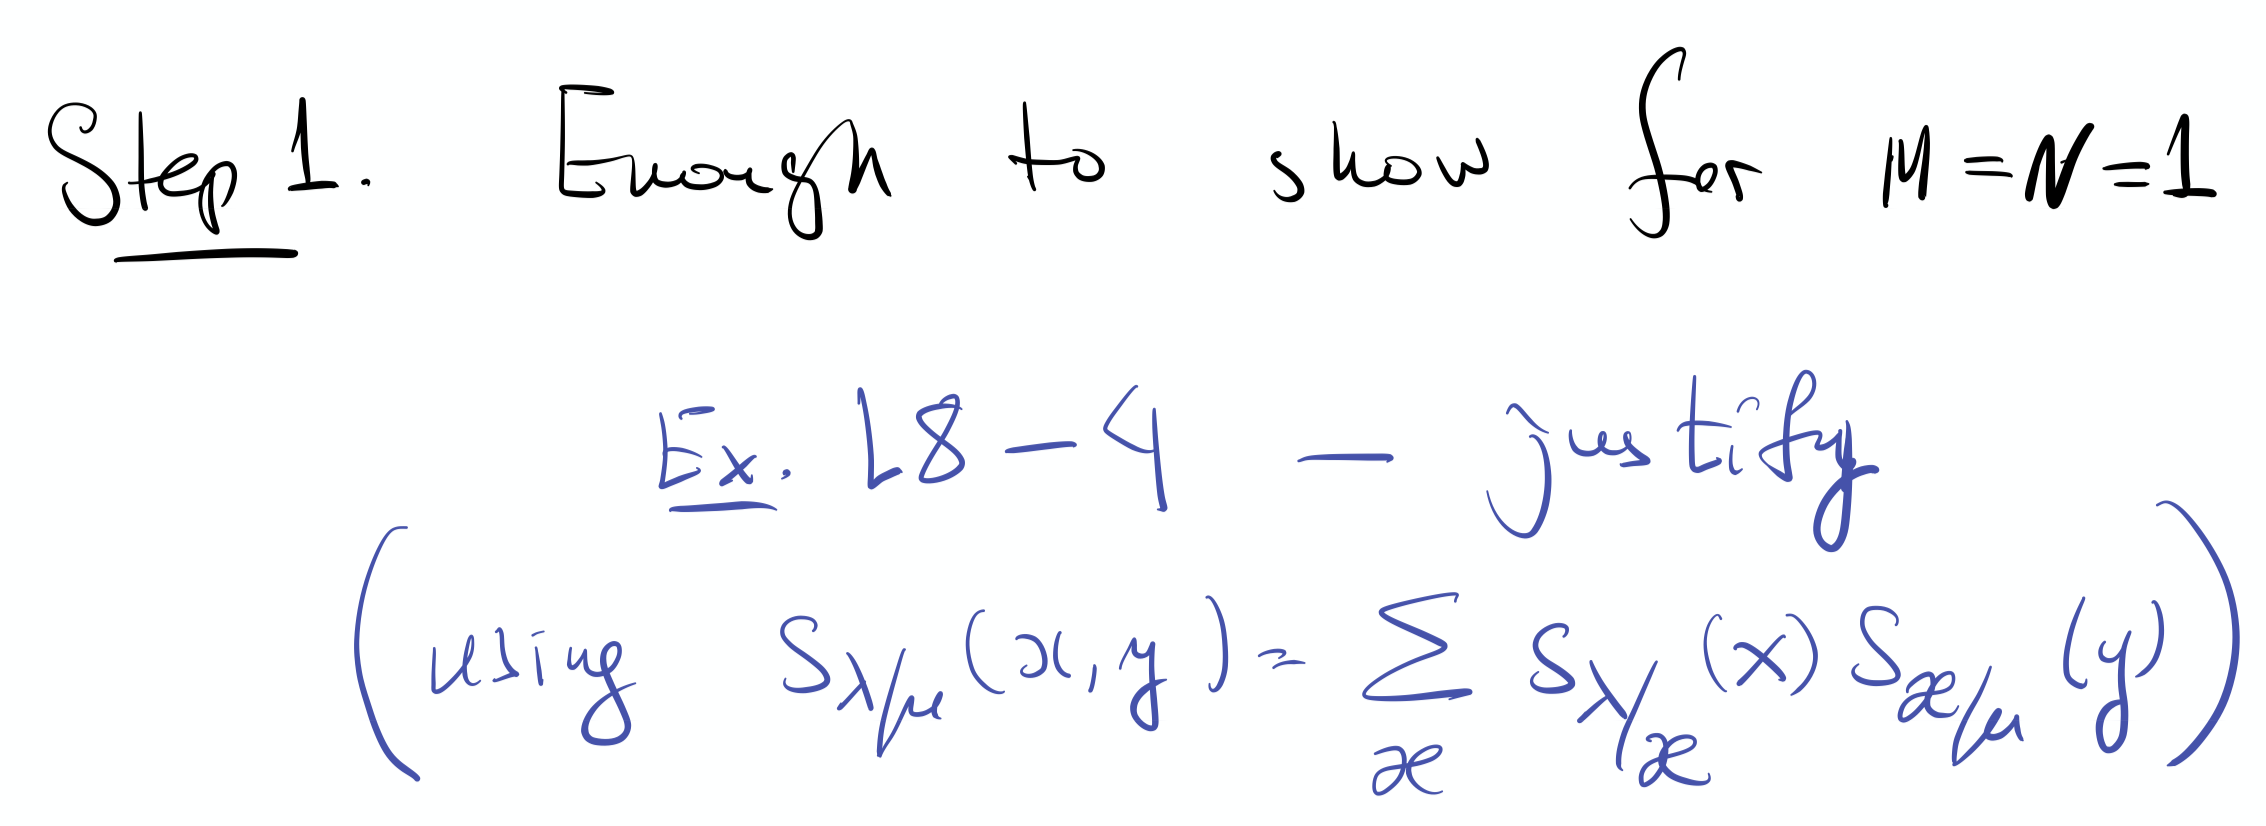 Step 1. Enough to show for M=N=1
Ex. L8-4 — justify
(using S_{λ/μ}(x,y) = Σ_{æ} S_{λ/æ}(x) S_{æ/μ}(y))